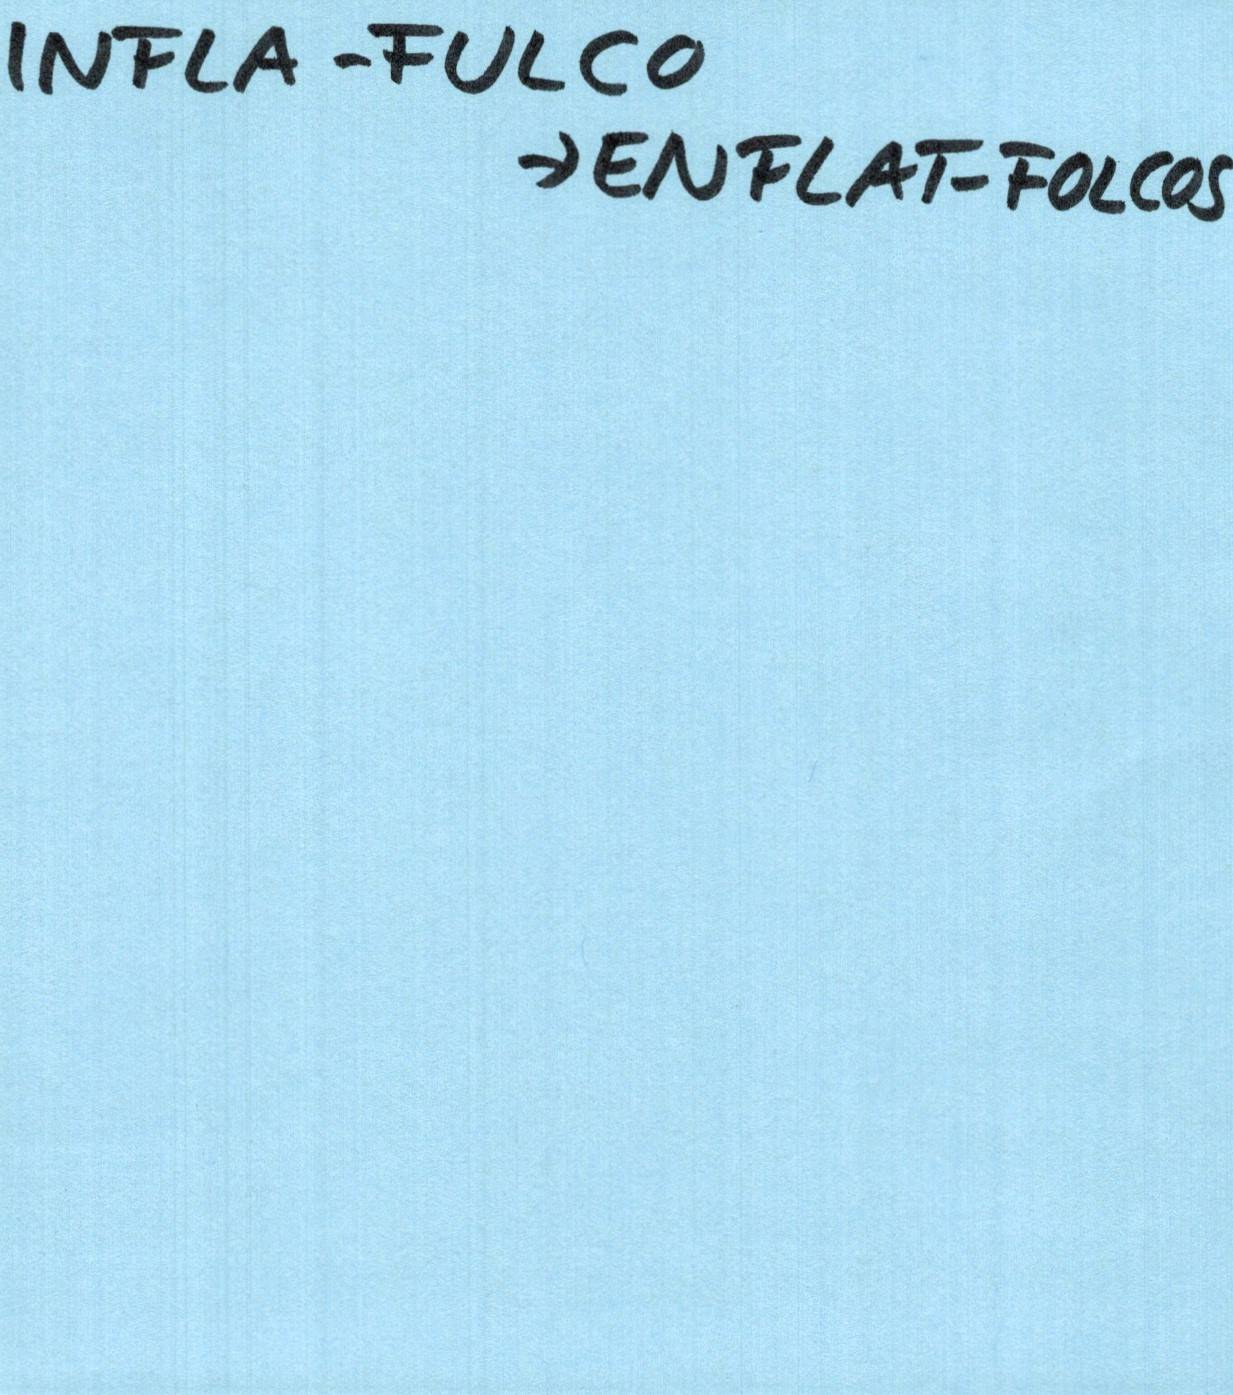 INFLA-FULCO
→ENFLAT-FOLCOS